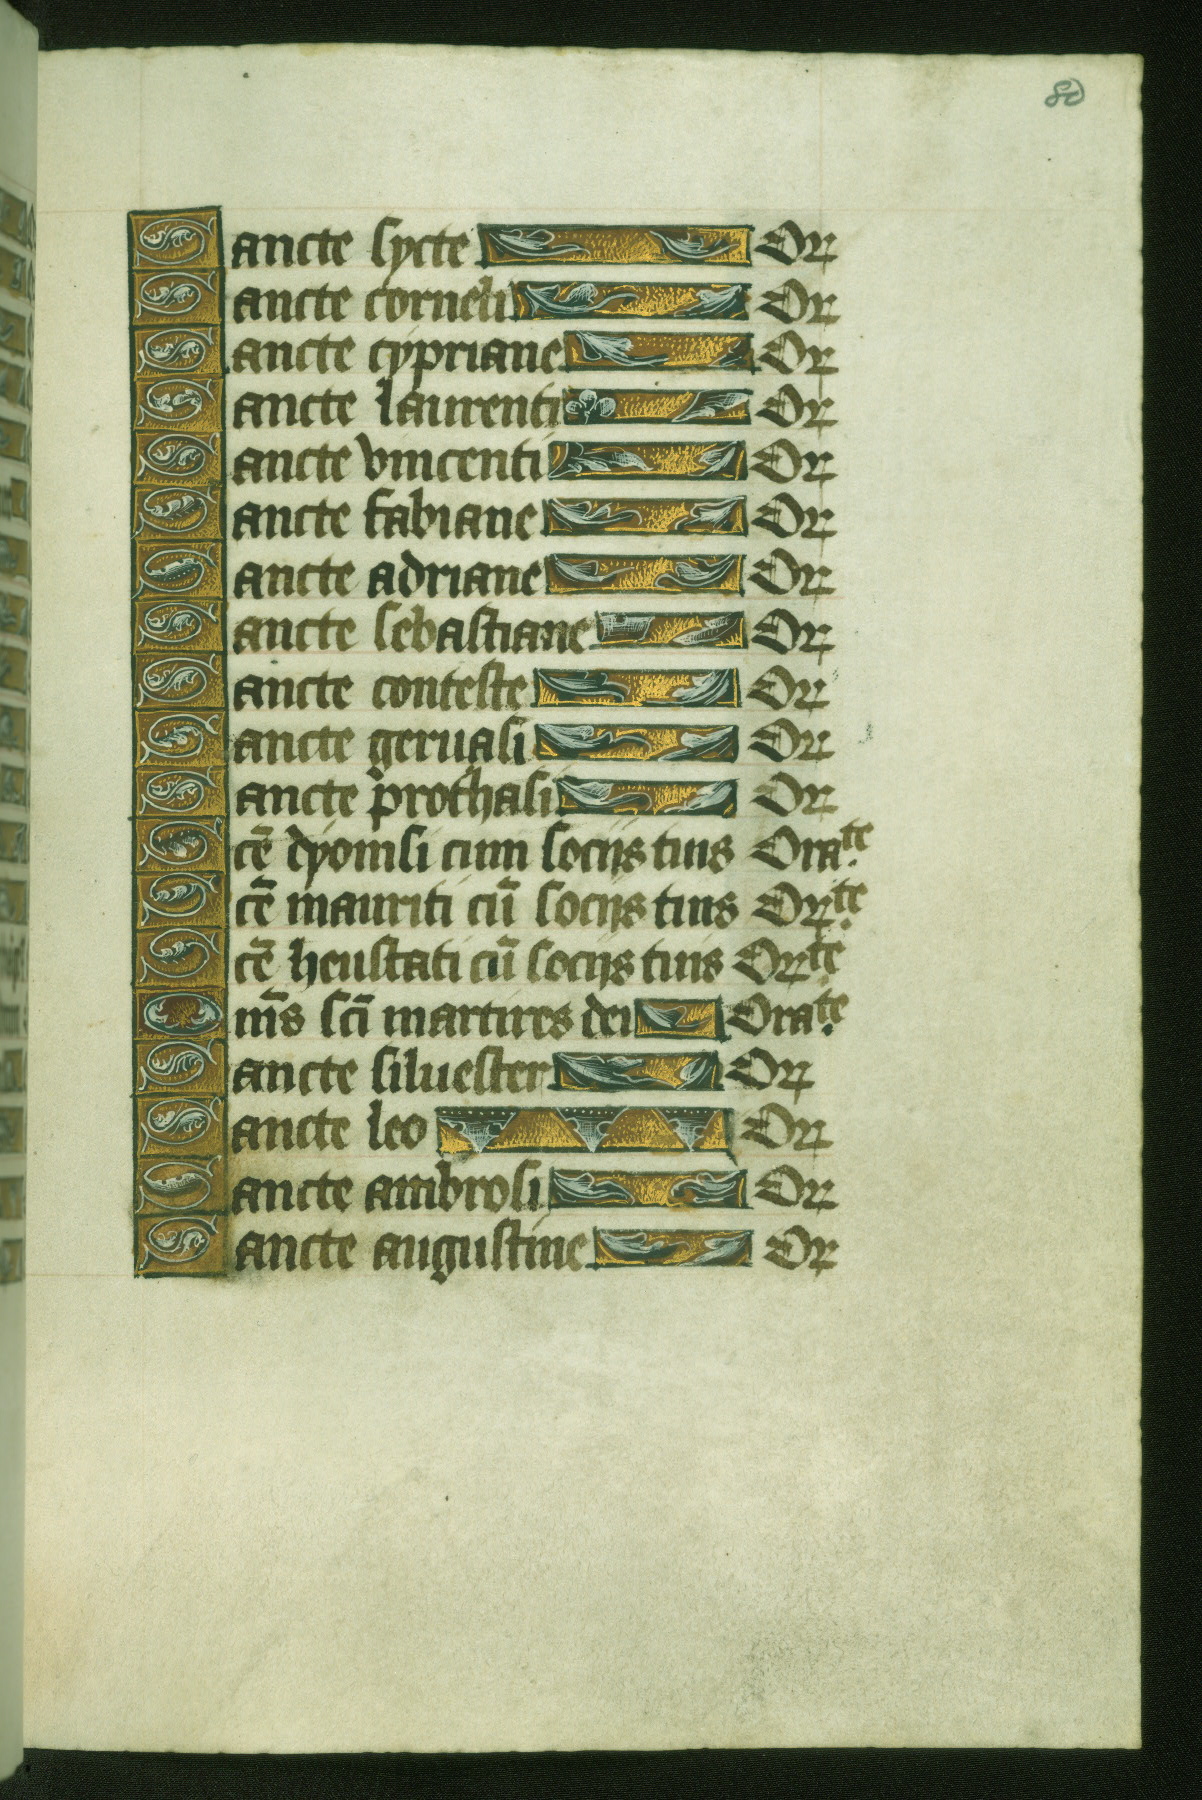 80
Sancte sycte Or
Sancte corneli Or
Sancte cypriane Or
Sancte laurenti Or
Sancte vincenti Or
Sancte fabiane Or
Sancte adriane Or
Sancte sebastiane Or
Sancte conteste Or
Sancte geruasi Or
Sancte prothasi Or
Scē dyonisi cum socijs tuis Orate.
Scē mauriti cū socijs tuis Orte.
Scē heustati cū socijs tuis Orte
Om̄s scī martires dei Orate.
Sancte siluester Or
Sancte leo Or
Sancte ambrosi Or
Sancte augustine Or